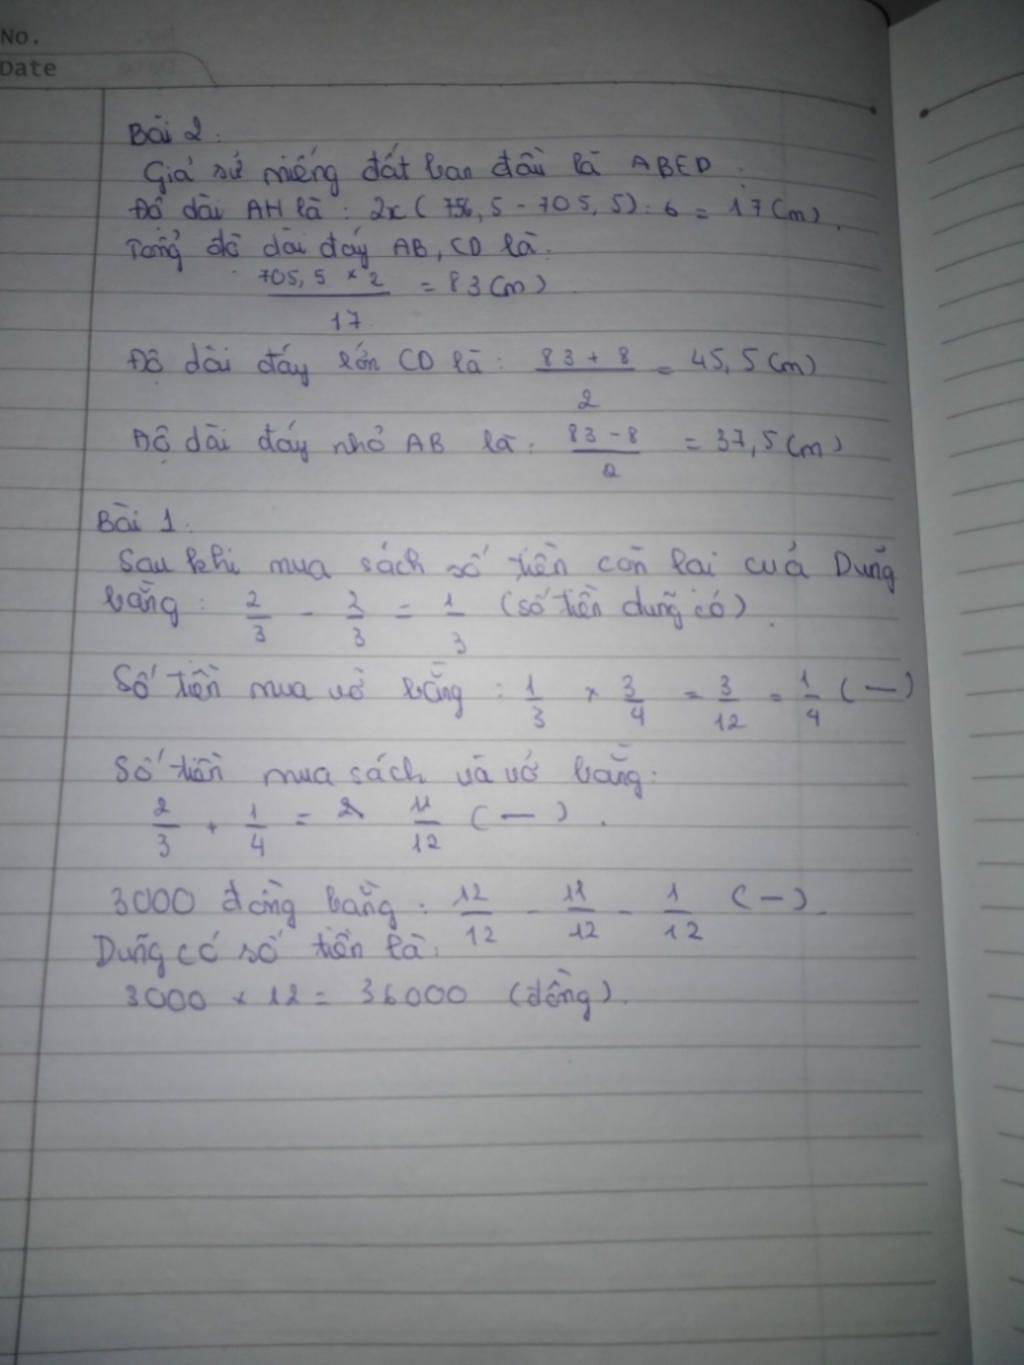 No.
Date
Bài 2:
Giả sử miếng đất ban đầu là ABED.
Độ dài AH là: 2x(756,5-705,5):6=17(m).
Tổng độ dài đáy AB, CD là.
705,5 × 2 / 17 = 83(m)
Độ dài đáy lớn CD là: 83+8 / 2 = 45,5(m)
Độ dài đáy nhỏ AB là: 83-8 / 2 = 37,5(m)
Bài 1.
Sau khi mua sách số tiền còn lại cuả Dũng
bằng: 2/3 - 2/3 = 1/3 (số tiền dũng có).
Số tiền mua vở bằng: 1/3 × 3/4 = 3/12 = 1/4 (—)
Số tiền mua sách và vở bằng:
2/3 + 1/4 = 11/12 (—).
3000 đồng bằng: 12/12 - 11/12 - 1/12 (—).
Dũng có số tiền là:
3000 × 12 = 36000 (đồng).